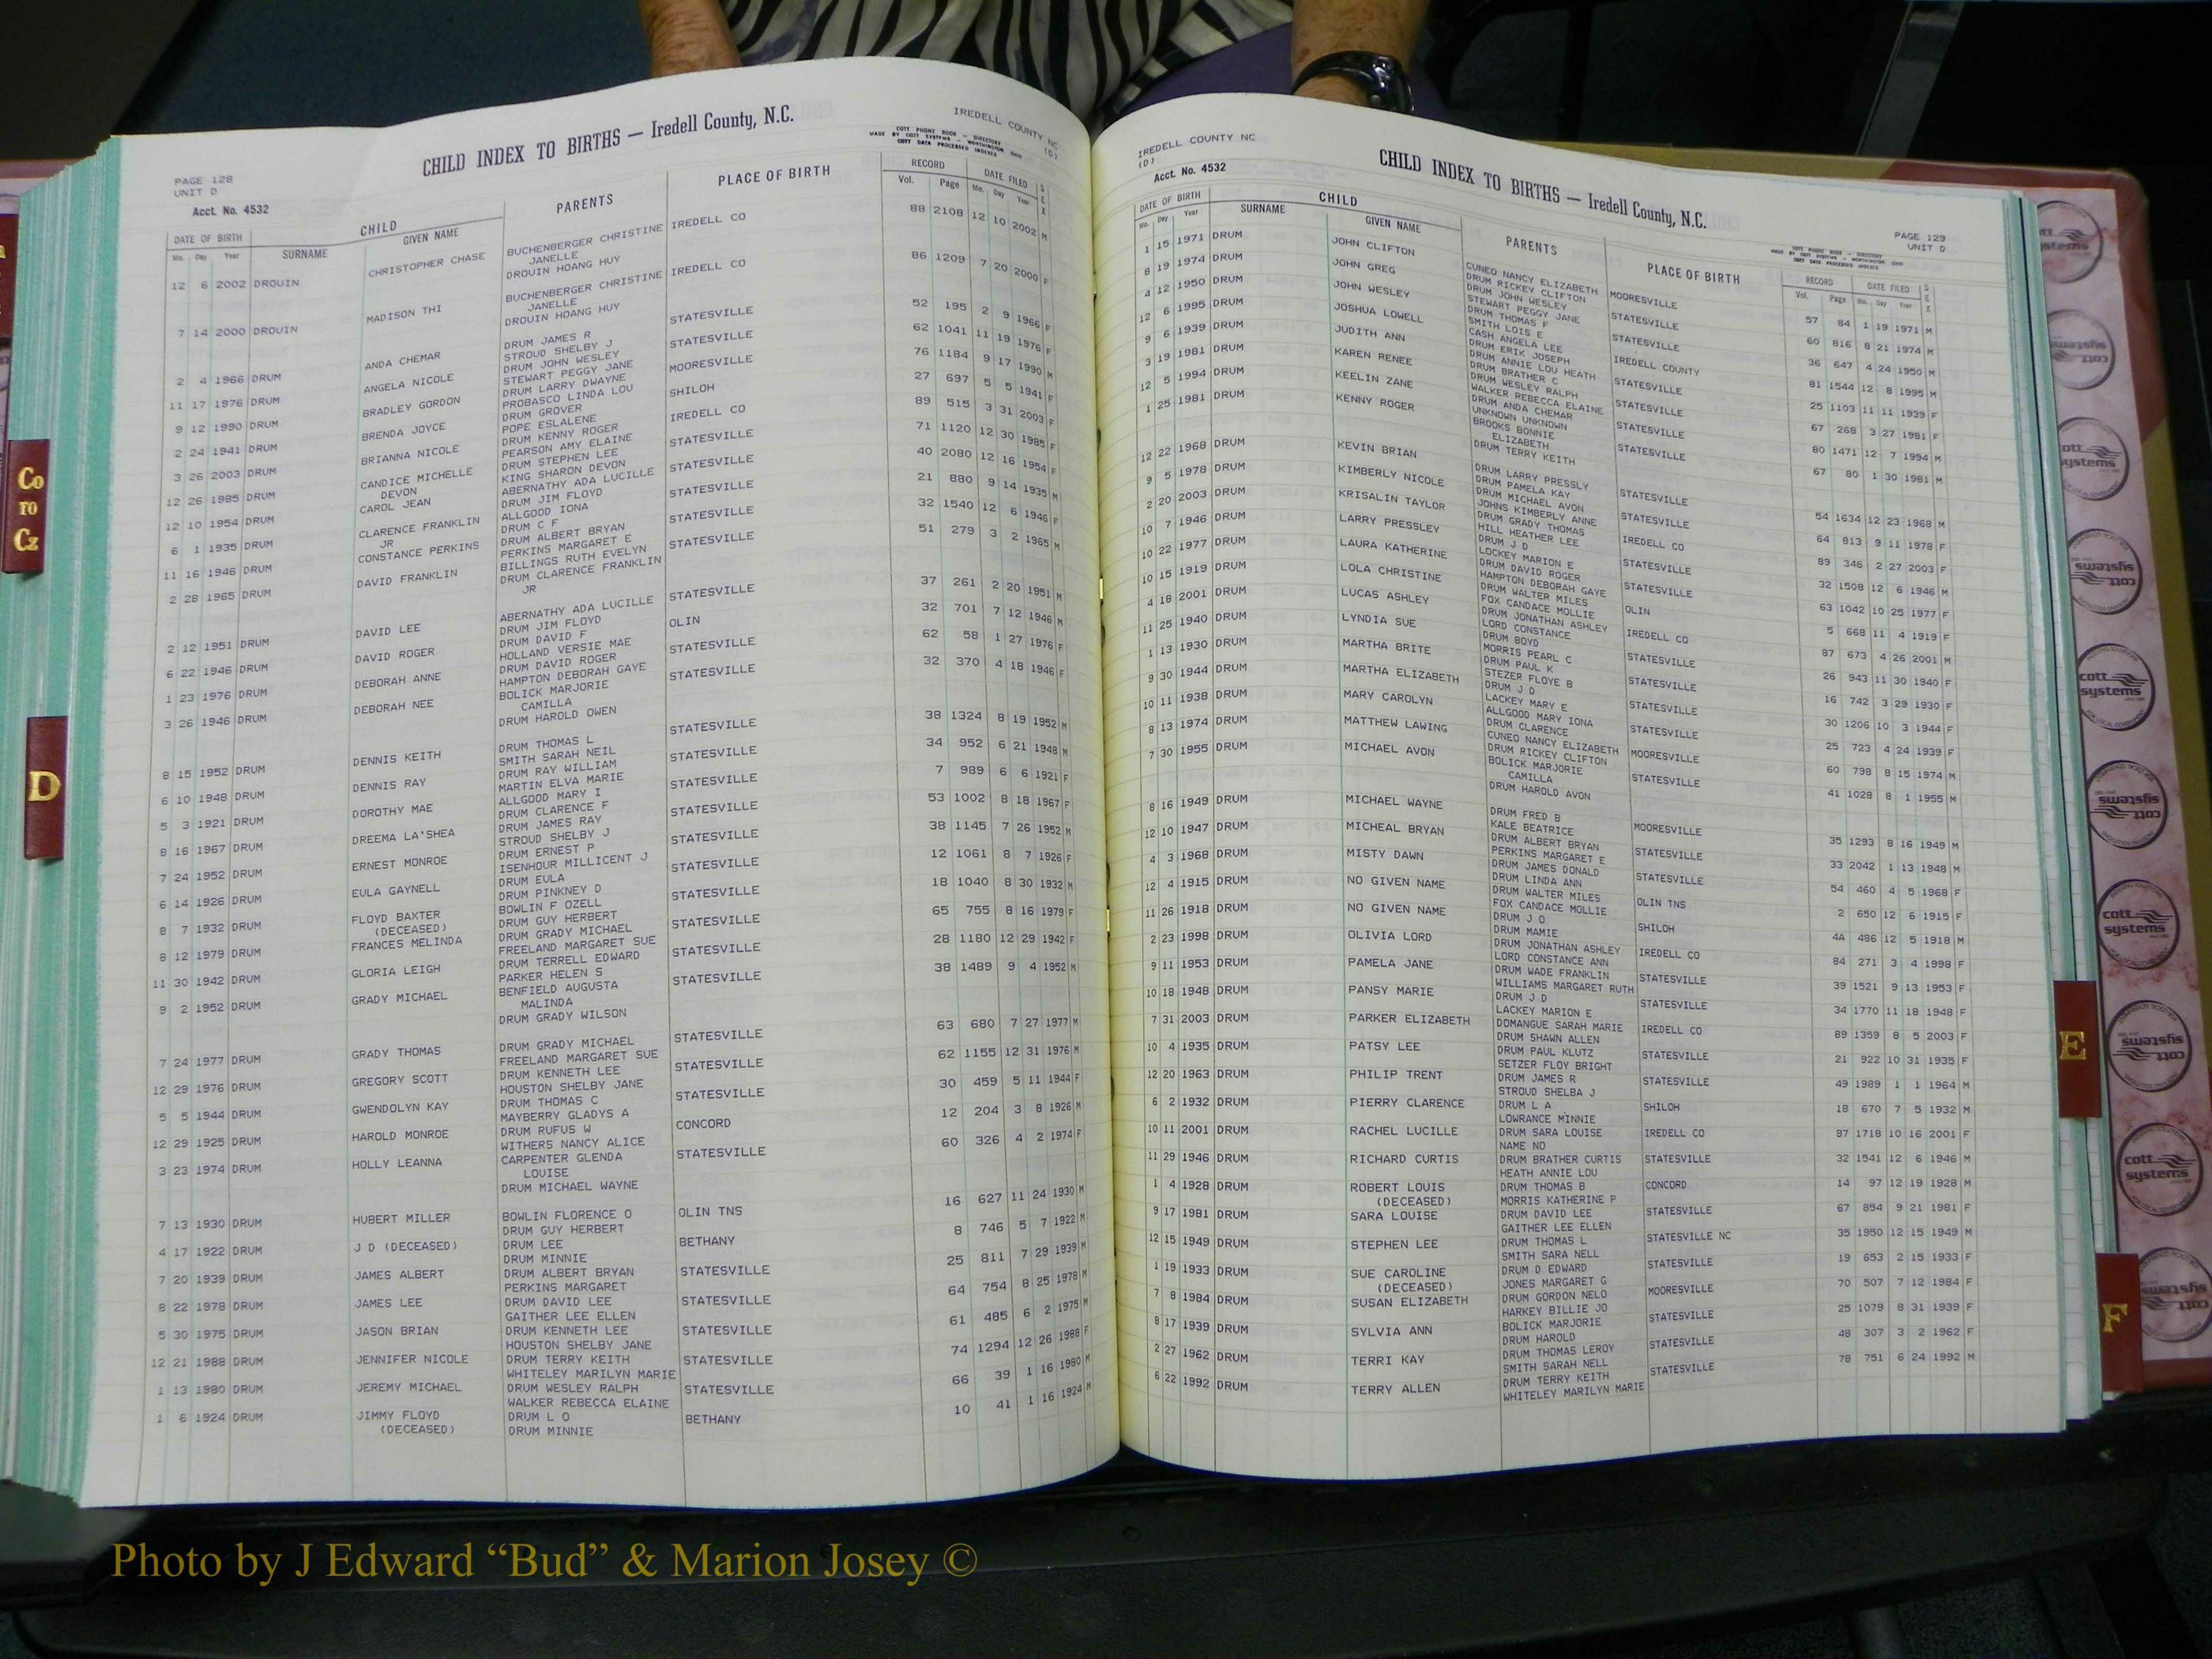 PAGE 128
UNIT D
Acct. No. 4532
CHILD INDEX TO BIRTHS — Iredell County, N.C.
IREDELL COUNTY NC
(D)
COTT PHONE BOOK - DIRECTORY
MADE BY COTT SYSTEMS - WORTHINGTON OHIO
COTT DATA PROCESSED INDEXES
DATE OF BIRTH CHILD PARENTS PLACE OF BIRTH RECORD DATE FILED SEX
Mo. Day Year SURNAME GIVEN NAME Vol. Page Mo. Day Year
12 6 2002 DROUIN CHRISTOPHER CHASE BUCHENBERGER CHRISTINE IREDELL CO 88 2108 12 10 2002 M
JANELLE
DROUIN HOANG HUY
7 14 2000 DROUIN MADISON THI BUCHENBERGER CHRISTINE IREDELL CO 86 1209 7 20 2000 F
JANELLE
DROUIN HOANG HUY
2 4 1966 DRUM ANDA CHEMAR DRUM JAMES R STATESVILLE 52 195 2 9 1966 F
STROUD SHELBY J
11 17 1976 DRUM ANGELA NICOLE DRUM JOHN WESLEY STATESVILLE 62 1041 11 19 1976 F
STEWART PEGGY JANE
9 12 1990 DRUM BRADLEY GORDON DRUM LARRY DWAYNE MOORESVILLE 76 1184 9 17 1990 M
PROBASCO LINDA LOU
2 24 1941 DRUM BRENDA JOYCE DRUM GROVER SHILOH 27 697 5 5 1941 F
POPE ESLALENE
3 26 2003 DRUM BRIANNA NICOLE DRUM KENNY ROGER IREDELL CO 89 515 3 31 2003 F
PEARSON AMY ELAINE
12 26 1985 DRUM CANDICE MICHELLE DRUM STEPHEN LEE STATESVILLE 71 1120 12 30 1985 F
DEVON KING SHARON DEVON
12 10 1954 DRUM CAROL JEAN ABERNATHY ADA LUCILLE STATESVILLE 40 2080 12 16 1954 F
DRUM JIM FLOYD
6 1 1935 DRUM CLARENCE FRANKLIN ALLGOOD IONA STATESVILLE 21 880 9 14 1935 M
JR DRUM C F
11 16 1946 DRUM CONSTANCE PERKINS DRUM ALBERT BRYAN STATESVILLE 32 1540 12 6 1946 F
PERKINS MARGARET E
2 28 1965 DRUM DAVID FRANKLIN BILLINGS RUTH EVELYN STATESVILLE 51 279 3 2 1965 M
DRUM CLARENCE FRANKLIN
JR
2 12 1951 DRUM DAVID LEE ABERNATHY ADA LUCILLE STATESVILLE 37 261 2 20 1951 M
DRUM JIM FLOYD
6 22 1946 DRUM DAVID ROGER DRUM DAVID F OLIN 32 701 7 12 1946 M
HOLLAND VERSIE MAE
1 23 1976 DRUM DEBORAH ANNE DRUM DAVID ROGER STATESVILLE 62 58 1 27 1976 F
HAMPTON DEBORAH GAYE
3 26 1946 DRUM DEBORAH NEE BOLICK MARJORIE STATESVILLE 32 370 4 18 1946 F
CAMILLA
DRUM HAROLD OWEN
8 15 1952 DRUM DENNIS KEITH DRUM THOMAS L STATESVILLE 38 1324 8 19 1952 M
SMITH SARAH NEIL
6 10 1948 DRUM DENNIS RAY DRUM RAY WILLIAM STATESVILLE 34 952 6 21 1948 M
MARTIN ELVA MARIE
5 3 1921 DRUM DOROTHY MAE ALLGOOD MARY I STATESVILLE 7 989 6 6 1921 F
DRUM CLARENCE F
8 16 1967 DRUM DREEMA LA'SHEA DRUM JAMES RAY STATESVILLE 53 1002 8 18 1967 F
STROUD SHELBY J
7 24 1952 DRUM ERNEST MONROE DRUM ERNEST P STATESVILLE 38 1145 7 26 1952 M
ISENHOUR MILLICENT J
6 14 1926 DRUM EULA GAYNELL DRUM EULA STATESVILLE 12 1061 8 7 1926 F
DRUM PINKNEY D
8 7 1932 DRUM FLOYD BAXTER BOWLIN F OZELL STATESVILLE 18 1040 8 30 1932 M
(DECEASED) DRUM GUY HERBERT
8 12 1979 DRUM FRANCES MELINDA DRUM GRADY MICHAEL STATESVILLE 65 755 8 16 1979 F
FREELAND MARGARET SUE
11 30 1942 DRUM GLORIA LEIGH DRUM TERRELL EDWARD STATESVILLE 28 1180 12 29 1942 F
PARKER HELEN S
9 2 1952 DRUM GRADY MICHAEL BENFIELD AUGUSTA STATESVILLE 38 1489 9 4 1952 M
MALINDA
DRUM GRADY WILSON
7 24 1977 DRUM GRADY THOMAS DRUM GRADY MICHAEL STATESVILLE 63 680 7 27 1977 M
FREELAND MARGARET SUE
12 29 1976 DRUM GREGORY SCOTT DRUM KENNETH LEE STATESVILLE 62 1155 12 31 1976 M
HOUSTON SHELBY JANE
5 5 1944 DRUM GWENDOLYN KAY DRUM THOMAS C STATESVILLE 30 459 5 11 1944 F
MAYBERRY GLADYS A
12 29 1925 DRUM HAROLD MONROE DRUM RUFUS W CONCORD 12 204 3 8 1926 M
WITHERS NANCY ALICE
3 23 1974 DRUM HOLLY LEANNA CARPENTER GLENDA STATESVILLE 60 326 4 2 1974 F
LOUISE
DRUM MICHAEL WAYNE
7 13 1930 DRUM HUBERT MILLER BOWLIN FLORENCE O OLIN TNS 16 627 11 24 1930 M
DRUM GUY HERBERT
4 17 1922 DRUM J D (DECEASED) DRUM LEE BETHANY 8 746 5 7 1922 M
DRUM MINNIE
7 20 1939 DRUM JAMES ALBERT DRUM ALBERT BRYAN STATESVILLE 25 811 7 29 1939 M
PERKINS MARGARET
8 22 1978 DRUM JAMES LEE DRUM DAVID LEE STATESVILLE 64 754 8 25 1978 M
GAITHER LEE ELLEN
5 30 1975 DRUM JASON BRIAN DRUM KENNETH LEE STATESVILLE 61 485 6 2 1975 M
HOUSTON SHELBY JANE
12 21 1988 DRUM JENNIFER NICOLE DRUM TERRY KEITH STATESVILLE 74 1294 12 26 1988 F
WHITELEY MARILYN MARIE
1 13 1980 DRUM JEREMY MICHAEL DRUM WESLEY RALPH STATESVILLE 66 39 1 16 1980 M
WALKER REBECCA ELAINE
1 6 1924 DRUM JIMMY FLOYD DRUM L O BETHANY 10 41 1 16 1924 M
(DECEASED) DRUM MINNIE
IREDELL COUNTY NC
(D)
Acct. No. 4532
CHILD INDEX TO BIRTHS — Iredell County, N.C.
PAGE 129
UNIT D
COTT PHONE BOOK - DIRECTORY
MADE BY COTT SYSTEMS - WORTHINGTON OHIO
COTT DATA PROCESSED INDEXES
DATE OF BIRTH CHILD PARENTS PLACE OF BIRTH RECORD DATE FILED SEX
Mo. Day Year SURNAME GIVEN NAME Vol. Page Mo. Day Year
1 15 1971 DRUM JOHN CLIFTON CUNEO NANCY ELIZABETH MOORESVILLE 57 84 1 19 1971 M
DRUM RICKEY CLIFTON
8 19 1974 DRUM JOHN GREG DRUM JOHN WESLEY STATESVILLE 60 816 8 21 1974 M
STEWART PEGGY JANE
4 12 1950 DRUM JOHN WESLEY DRUM THOMAS F STATESVILLE 36 647 4 24 1950 M
SMITH LOIS E
12 6 1995 DRUM JOSHUA LOWELL CASH ANGELA LEE IREDELL COUNTY 81 1544 12 8 1995 M
DRUM ERIK JOSEPH
9 6 1939 DRUM JUDITH ANN DRUM ANNIE LOU HEATH STATESVILLE 25 1103 11 11 1939 F
DRUM BRATHER C
3 19 1981 DRUM KAREN RENEE DRUM WESLEY RALPH STATESVILLE 67 268 3 27 1981 F
WALKER REBECCA ELAINE
12 5 1994 DRUM KEELIN ZANE DRUM ANDA CHEMAR STATESVILLE 80 1471 12 7 1994 M
UNKNOWN UNKNOWN
1 25 1981 DRUM KENNY ROGER BROOKS BONNIE STATESVILLE 67 80 1 30 1981 M
ELIZABETH
DRUM TERRY KEITH
12 22 1968 DRUM KEVIN BRIAN DRUM LARRY PRESSLY STATESVILLE 54 1634 12 23 1968 M
DRUM PAMELA KAY
9 5 1978 DRUM KIMBERLY NICOLE DRUM MICHAEL AVON STATESVILLE 64 813 9 11 1978 F
JOHNS KIMBERLY ANNE
2 20 2003 DRUM KRISALIN TAYLOR DRUM GRADY THOMAS IREDELL CO 89 346 2 27 2003 F
HILL HEATHER LEE
10 7 1946 DRUM LARRY PRESSLEY DRUM J D STATESVILLE 32 1508 12 6 1946 M
LOCKEY MARION E
10 22 1977 DRUM LAURA KATHERINE DRUM DAVID ROGER STATESVILLE 63 1042 10 25 1977 F
HAMPTON DEBORAH GAYE
10 15 1919 DRUM LOLA CHRISTINE DRUM WALTER MILES OLIN 5 668 11 4 1919 F
FOX CANDACE MOLLIE
4 18 2001 DRUM LUCAS ASHLEY DRUM JONATHAN ASHLEY IREDELL CO 87 673 4 26 2001 M
LORD CONSTANCE
11 25 1940 DRUM LYNDIA SUE DRUM BOYD STATESVILLE 26 943 11 30 1940 F
MORRIS PEARL C
1 13 1930 DRUM MARTHA BRITE DRUM PAUL K STATESVILLE 16 742 3 29 1930 F
STEZER FLOYE B
9 30 1944 DRUM MARTHA ELIZABETH DRUM J D STATESVILLE 30 1206 10 3 1944 F
LACKEY MARY E
10 11 1938 DRUM MARY CAROLYN ALLGOOD MARY IONA STATESVILLE 25 723 4 24 1939 F
DRUM CLARENCE
8 13 1974 DRUM MATTHEW LAWING CUNEO NANCY ELIZABETH MOORESVILLE 60 798 8 15 1974 M
DRUM RICKEY CLIFTON
7 30 1955 DRUM MICHAEL AVON BOLICK MARJORIE STATESVILLE 41 1028 8 1 1955 M
CAMILLA
DRUM HAROLD AVON
8 16 1949 DRUM MICHAEL WAYNE DRUM FRED B MOORESVILLE 35 1293 8 16 1949 M
KALE BEATRICE
12 10 1947 DRUM MICHEAL BRYAN DRUM ALBERT BRYAN STATESVILLE 33 2042 1 13 1948 M
PERKINS MARGARET E
4 3 1968 DRUM MISTY DAWN DRUM JAMES DONALD STATESVILLE 54 460 4 5 1968 F
DRUM LINDA ANN
12 4 1915 DRUM NO GIVEN NAME DRUM WALTER MILES OLIN TNS 2 650 12 6 1915 F
FOX CANDACE MOLLIE
11 26 1918 DRUM NO GIVEN NAME DRUM J O SHILOH 4A 486 12 5 1918 M
DRUM MAMIE
2 23 1998 DRUM OLIVIA LORD DRUM JONATHAN ASHLEY IREDELL CO 84 271 3 4 1998 F
LORD CONSTANCE ANN
9 11 1953 DRUM PAMELA JANE DRUM WADE FRANKLIN STATESVILLE 39 1521 9 13 1953 F
WILLIAMS MARGARET RUTH
10 18 1948 DRUM PANSY MARIE DRUM J D STATESVILLE 34 1770 11 18 1948 F
LACKEY MARION E
7 31 2003 DRUM PARKER ELIZABETH DOMANGUE SARAH MARIE IREDELL CO 89 1359 8 5 2003 F
DRUM SHAWN ALLEN
10 4 1935 DRUM PATSY LEE DRUM PAUL KLUTZ STATESVILLE 21 922 10 31 1935 F
SETZER FLOY BRIGHT
12 20 1963 DRUM PHILIP TRENT DRUM JAMES R STATESVILLE 49 1989 1 1 1964 M
STROUD SHELBA J
6 2 1932 DRUM PIERRY CLARENCE DRUM L A SHILOH 18 670 7 5 1932 M
LOWRANCE MINNIE
10 11 2001 DRUM RACHEL LUCILLE DRUM SARA LOUISE IREDELL CO 87 1718 10 16 2001 F
NAME NO
11 29 1946 DRUM RICHARD CURTIS DRUM BRATHER CURTIS STATESVILLE 32 1541 12 6 1946 M
HEATH ANNIE LOU
1 4 1928 DRUM ROBERT LOUIS DRUM THOMAS B CONCORD 14 97 12 19 1928 M
(DECEASED) MORRIS KATHERINE P
9 17 1981 DRUM SARA LOUISE DRUM DAVID LEE STATESVILLE 67 854 9 21 1981 F
GAITHER LEE ELLEN
12 15 1949 DRUM STEPHEN LEE DRUM THOMAS L STATESVILLE NC 35 1950 12 15 1949 M
SMITH SARA NELL
1 19 1933 DRUM SUE CAROLINE DRUM D EDWARD STATESVILLE 19 653 2 15 1933 F
(DECEASED) JONES MARGARET G
7 8 1984 DRUM SUSAN ELIZABETH DRUM GORDON NELO MOORESVILLE 70 507 7 12 1984 F
HARKEY BILLIE JO
8 17 1939 DRUM SYLVIA ANN BOLICK MARJORIE STATESVILLE 25 1079 8 31 1939 F
DRUM HAROLD
2 27 1962 DRUM TERRI KAY DRUM THOMAS LEROY STATESVILLE 48 307 3 2 1962 F
SMITH SARAH NELL
6 22 1992 DRUM TERRY ALLEN DRUM TERRY KEITH STATESVILLE 78 751 6 24 1992 M
WHITELEY MARILYN MARIE
Co
TO
Cz
D
E
F
cott
systems
Photo by J Edward “Bud” & Marion Josey ©